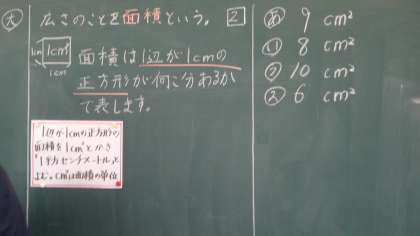 大 広さのことを面積という。
1cm 1cm² 面積は1辺が1cmの
1cm
正方形が何こ分あるか
で表します。
1辺が1cmの正方形の
面積を1cm²とかき
「1平方センチメートル」と
よむ。cm²は面積の単位
2
あ 9 cm²
い 8 cm²
う 10 cm²
え 6 cm²